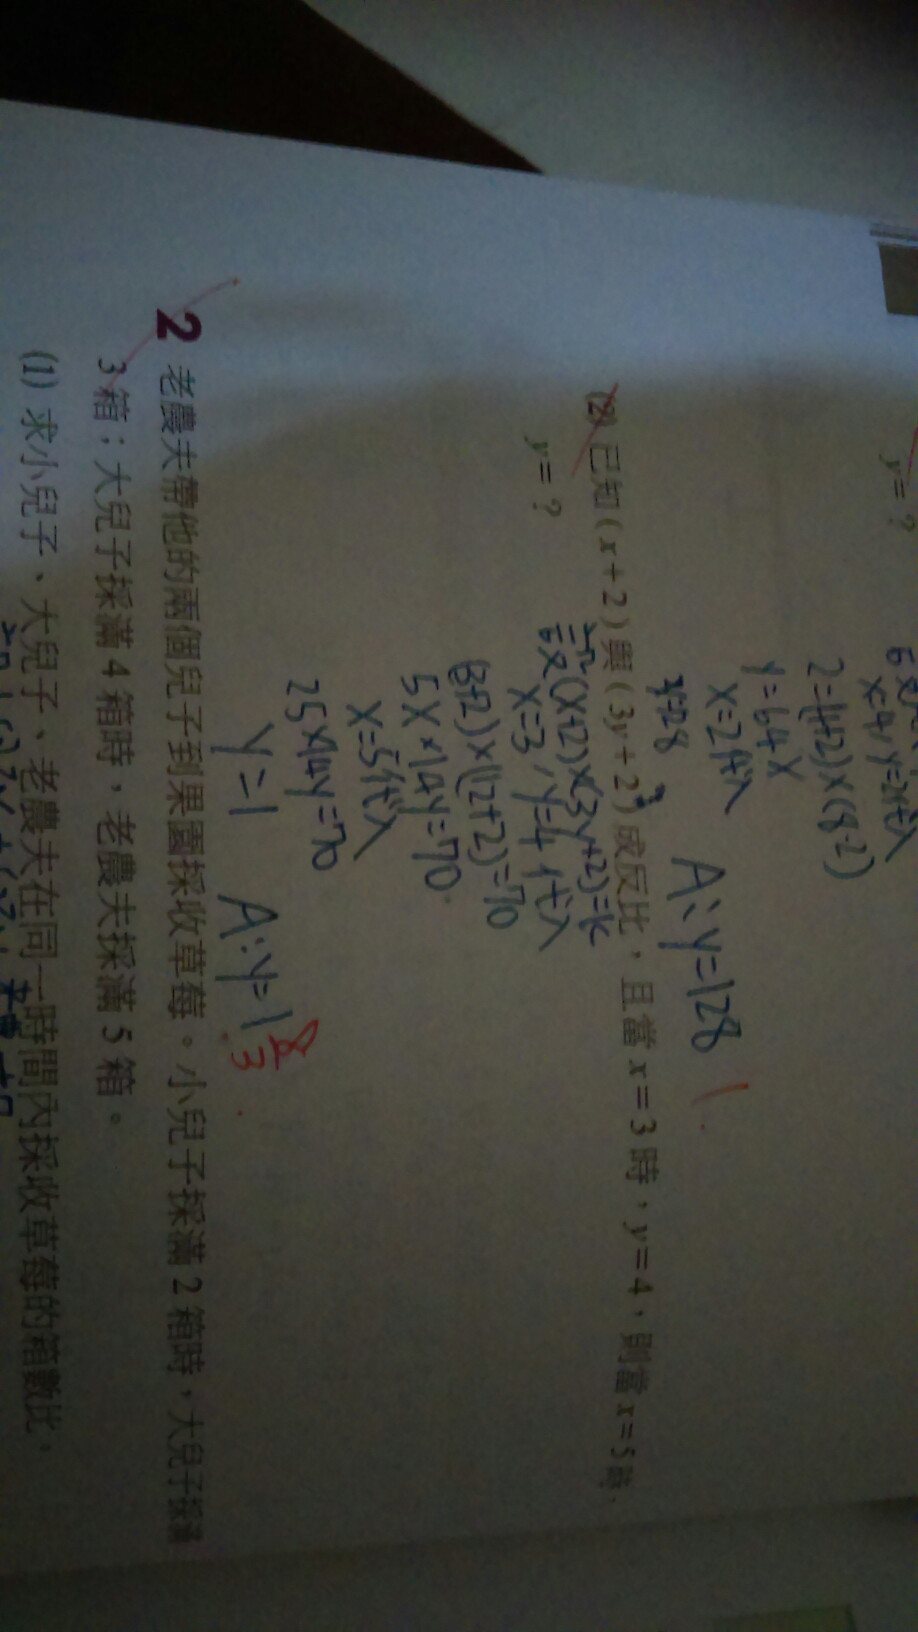 y=?
x=4,y=2代入
2=(4+2)×(8-2)
y=64x
x=2代入
A:y=128
(2) 已知(x+2)與(3y+2)成反比，且當x=3時，y=4，則當x=5時，
y=?
設(x+2)×(3y+2)=k
x=3,y=4代入
(3+2)×(12+2)=70
5x×14y=70
x=5代入
25×14y=70
y=1
A:y=1
8/3
2 老農夫帶他的兩個兒子到果園採收草莓。小兒子採滿2箱時，大兒子採滿
3箱；大兒子採滿4箱時，老農夫採滿5箱。
(1) 求小兒子、大兒子、老農夫在同一時間內採收草莓的箱數比。